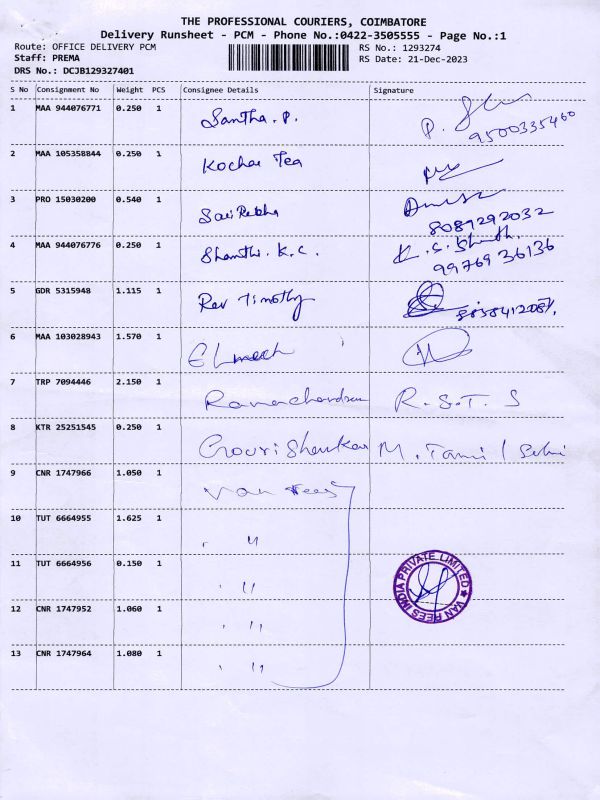 THE PROFESSIONAL COURIERS, COIMBATORE
Delivery Runsheet - PCM - Phone No.:0422-3505555 - Page No.:1
Route: OFFICE DELIVERY PCM RS No.: 1293274
Staff: PREMA RS Date: 21-Dec-2023
DRS No.: DCJB129327401
S No Consignment No Weight PCS Consignee Details Signature
1 MAA 944076771 0.250 1 Santha. P. P.
9500335460
2 MAA 105358844 0.250 1 Kochar Tea
3 PRO 15030200 0.540 1 Sai Rekha
8089292032
4 MAA 944076776 0.250 1 Shanthi. K. C. K. C. Shanthi
9976936136
5 GDR 5315948 1.115 1 Rev Timothy
6 MAA 103028943 1.570 1
7 TRP 7094446 2.150 1 Ramachandran R. S. T. S
8 KTR 25251545 0.250 1 Gouri Shankar M. Tamil Selvi
9 CNR 1747966 1.050 1 Van Rees
10 TUT 6664955 1.625 1 "
11 TUT 6664956 0.150 1 "
VAN REES INDIA PRIVATE LIMITED
12 CNR 1747952 1.060 1 "
13 CNR 1747964 1.080 1 "